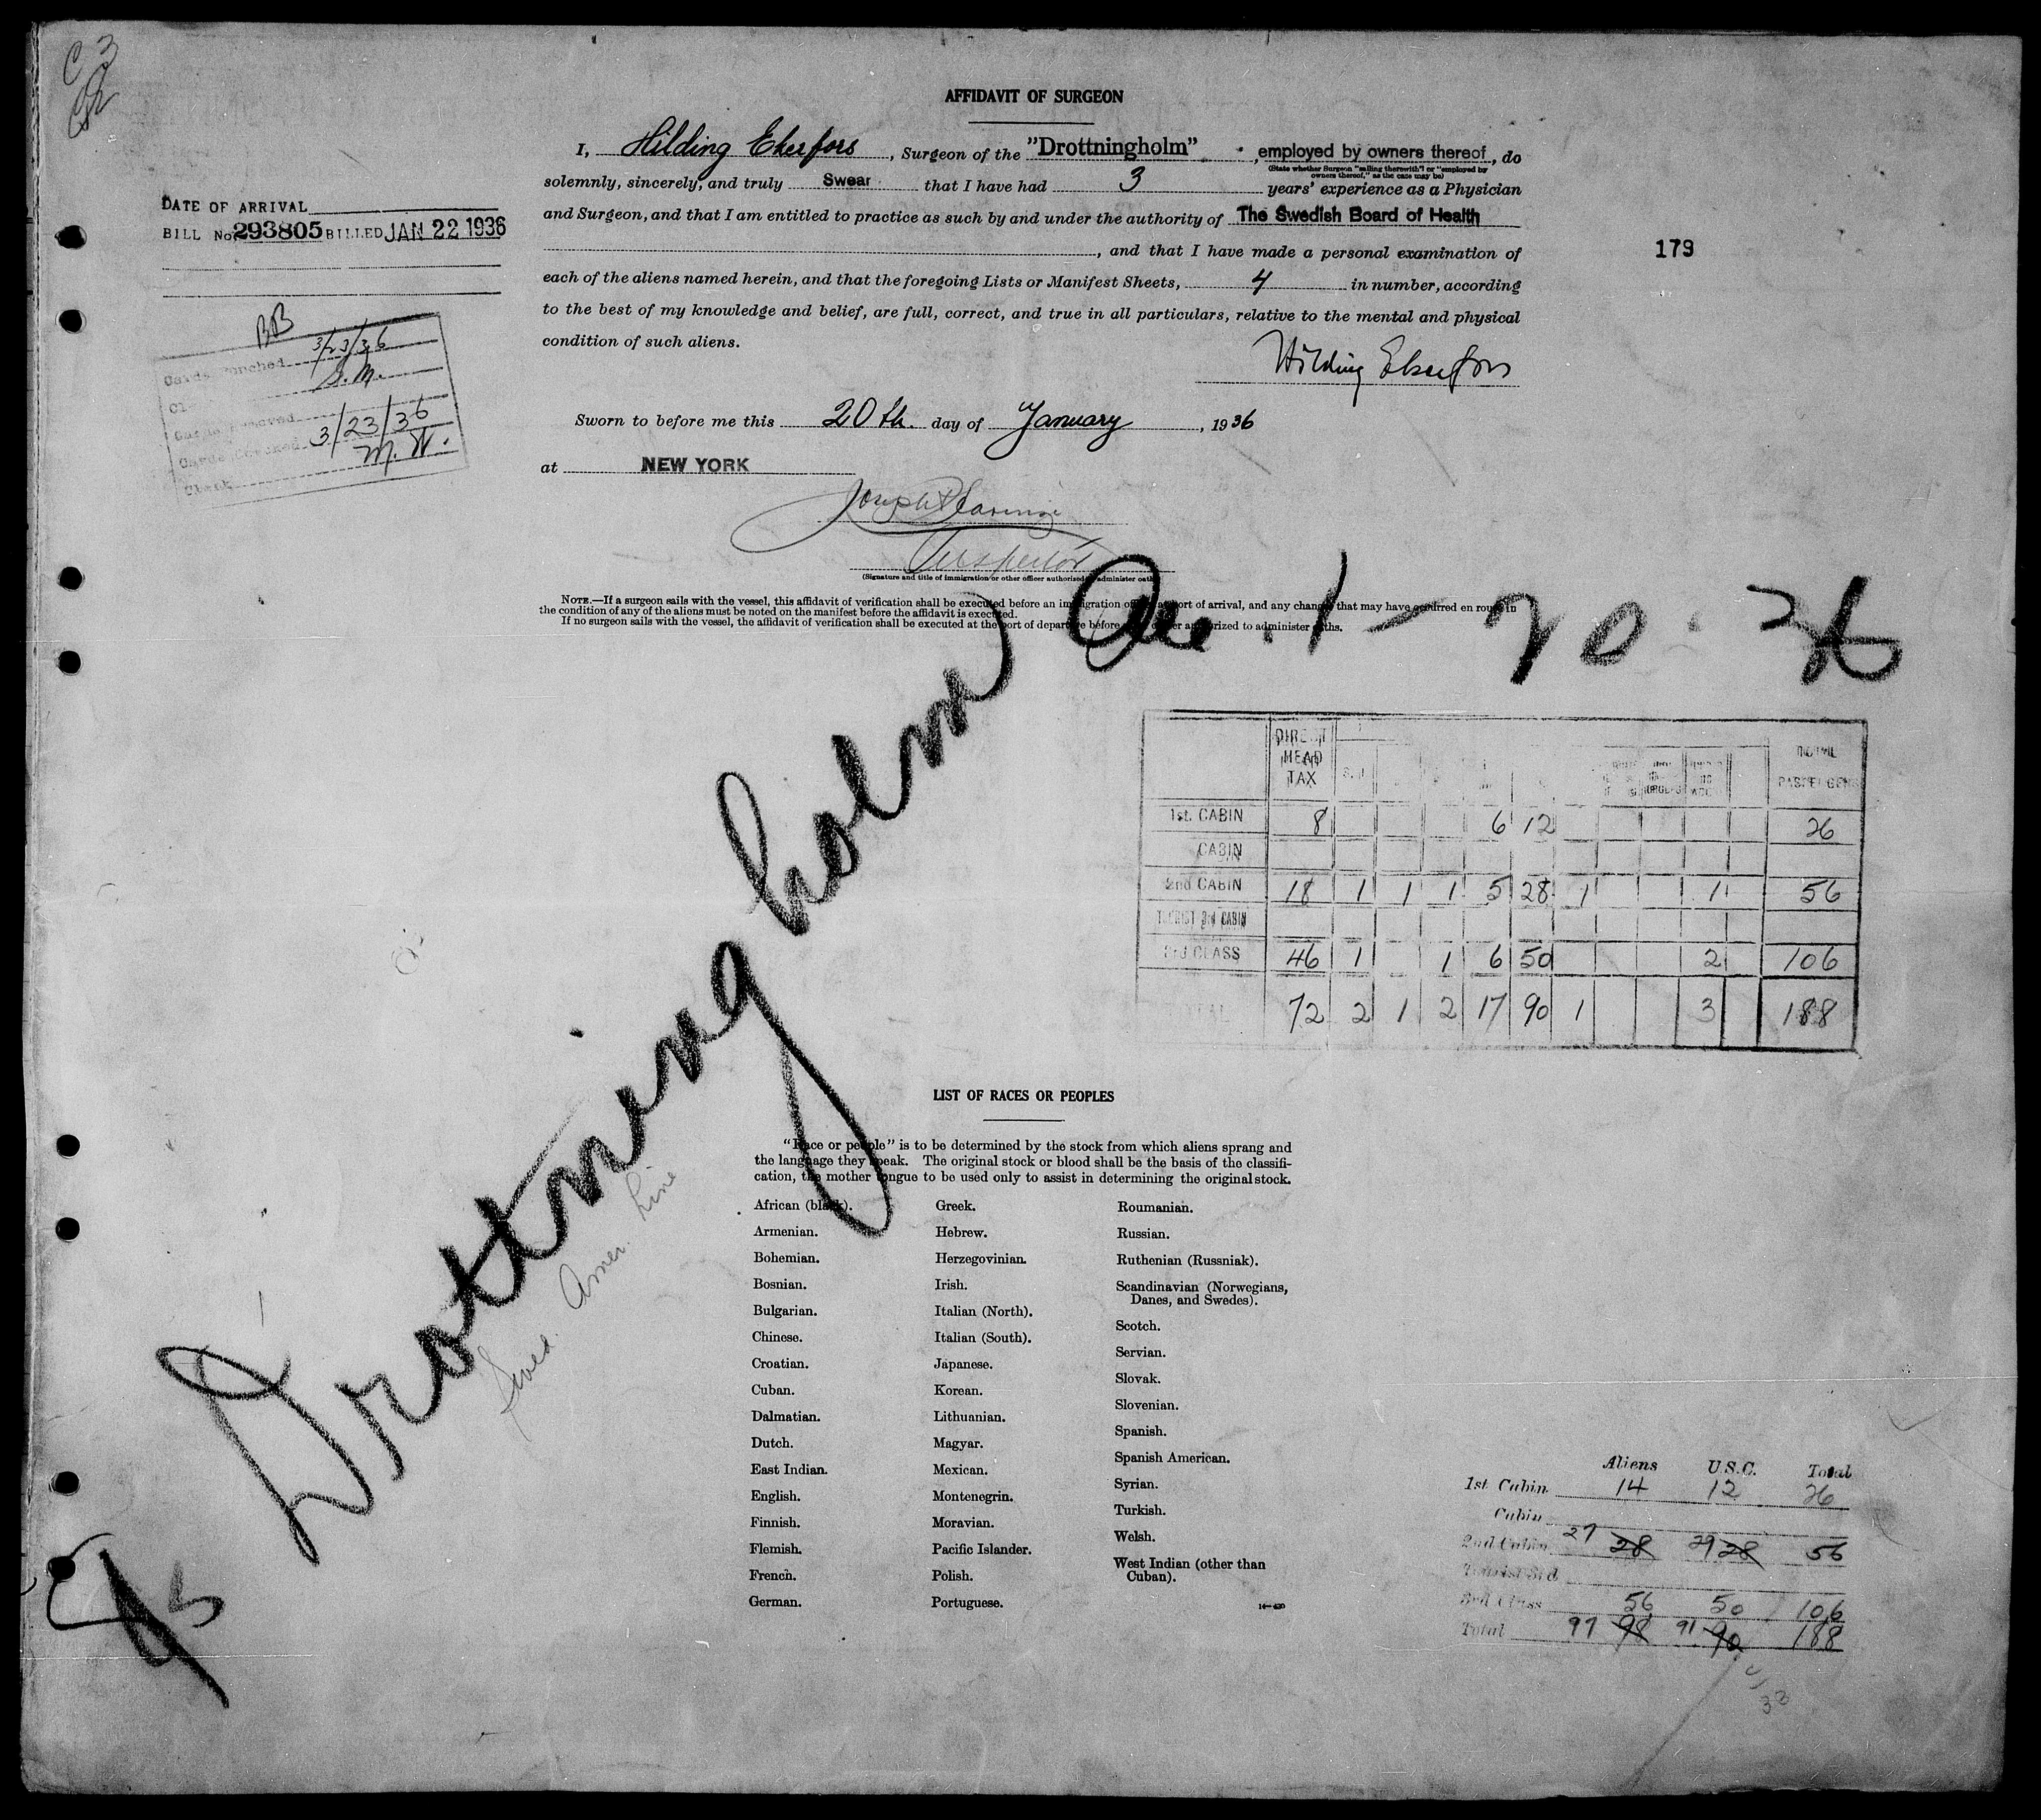 C 3
AFFIDAVIT OF SURGEON
I, Hilding Ekerfors, Surgeon of the "Drottningholm", employed by owners thereof, do
(State whether Surgeon "sailing therewith" or "employed by
owners thereof," as the case may be)
solemnly, sincerely, and truly Swear that I have had 3 years' experience as a Physician
and Surgeon, and that I am entitled to practice as such by and under the authority of The Swedish Board of Health
, and that I have made a personal examination of
each of the aliens named herein, and that the foregoing Lists or Manifest Sheets, 4 in number, according
to the best of my knowledge and belief, are full, correct, and true in all particulars, relative to the mental and physical
condition of such aliens.
Hilding Ekerfors
Sworn to before me this 20th. day of January, 1936
at NEW YORK
Inspector
(Signature and title of immigration or other officer authorized to administer oath)
NOTE.—If a surgeon sails with the vessel, this affidavit of verification shall be executed before an immigration officer at port of arrival, and any changes that may have occurred en route in
the condition of any of the aliens must be noted on the manifest before the affidavit is executed.
If no surgeon sails with the vessel, the affidavit of verification shall be executed at the port of departure before an officer authorized to administer oaths.
DATE OF ARRIVAL
BILL No. 293805 BILLED JAN 22 1936
179
BB
Cards punched 3/23/36
S.M.
3/23/36
M.W.
Clerk
Drottningholm
1-20-36
Swed. Amer. Line
DIRECT HEAD TAX
TOTAL PASSENGERS
1st. CABIN 8 6 12 26
CABIN
2nd CABIN 18 1 1 1 5 28 1 1 56
TOURIST 3rd CABIN
3rd CLASS 46 1 1 6 50 2 106
TOTAL 72 2 1 2 17 90 1 3 188
LIST OF RACES OR PEOPLES
"Race or people" is to be determined by the stock from which aliens sprang and
the language they speak. The original stock or blood shall be the basis of the classifi-
cation, the mother tongue to be used only to assist in determining the original stock.
African (black).
Armenian.
Bohemian.
Bosnian.
Bulgarian.
Chinese.
Croatian.
Cuban.
Dalmatian.
Dutch.
East Indian.
English.
Finnish.
Flemish.
French.
German.
Greek.
Hebrew.
Herzegovinian.
Irish.
Italian (North).
Italian (South).
Japanese.
Korean.
Lithuanian.
Magyar.
Mexican.
Montenegrin.
Moravian.
Pacific Islander.
Polish.
Portuguese.
Roumanian.
Russian.
Ruthenian (Russniak).
Scandinavian (Norwegians,
Danes, and Swedes).
Scotch.
Servian.
Slovak.
Slovenian.
Spanish.
Spanish American.
Syrian.
Turkish.
Welsh.
West Indian (other than
Cuban).
Aliens U.S.C. Total
1st Cabin 14 12 26
Cabin
2nd Cabin 27 28 29 28 56
Tourist 3rd
3rd Class 56 50 106
Total 97 98 91 90 188